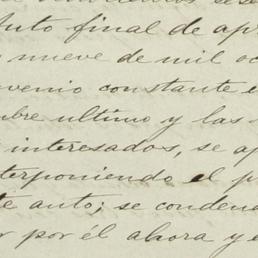 auto final de apr
nueve de mil oc
venio constante e
bre ultimo y las
interesados, se ap
terponiendo el p
te auto; se conden
r por él ahora y e